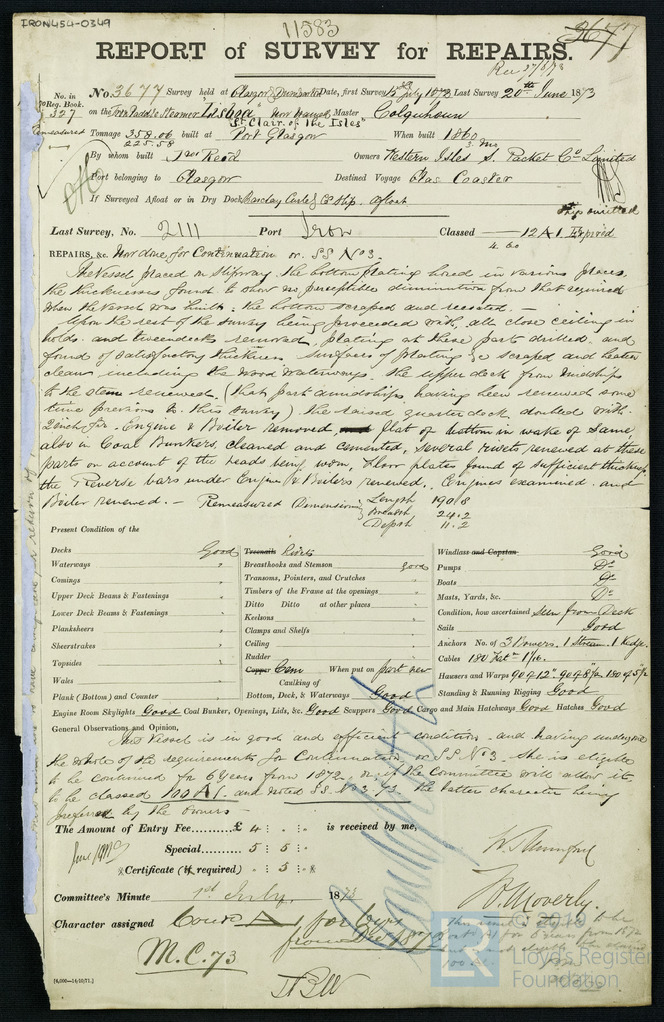 IRON454-0349
11583
3677
REPORT of SURVEY for REPAIRS.
Rec 27/6/73
No. in Reg. Book. 327
No. 3677 Survey held at Glasgow & Dumbarton Date, first Survey July 1872 Last Survey 20th June 1873
on the Iron Paddle Steamer "Lisboa" now named Master Colquhoun
"St Clair of the Isles"
Remeasured
Tonnage 358.06 built at Port Glasgow When built 1860
225.58 3 mo
By whom built Jno Reid Owners Western Isles S. Packet Co Limited
Port belonging to Glasgow Destined Voyage Glas. Coaster
If Surveyed Afloat or in Dry Dock Barclay Curle & Co Slip. afloat
Last Survey, No. 2111 Port Iron Classed 12 A 1 Expired
4. 60
REPAIRS, &c. Now done for Continuation or SS No 3.
The Vessel placed on Slipway. The bottom plating bored in various places.
the thicknesses found to show no perceptible diminution from that required
when the vessel was built. the bottom scraped and recoated. —
Upon the rest of the survey being proceeded with, all close ceiling in
holds and tweendecks removed, plating at these parts drilled and
found of satisfactory thickness. Surfaces of plating &c scraped and beaten
clean, including the wood waterways. the upper deck from midships
to the stem renewed. (that part amidships having been renewed some
time previous to this survey). the raised quarter deck doubled with
2 inch fir. Engine & Boiler removed, flat of bottom in wake of same
also in Coal Bunkers, cleaned and cemented, several rivets renewed at these
parts on account of the heads being worn, floor plates found of sufficient thickness
the Reverse bars under Engine & Boilers renewed. Engines examined and
Boiler renewed. — Remeasured Dimensions Length 190.8
Breadth 24.2
Depth 11.2
Present Condition of the
Decks Good
Waterways "
Comings "
Upper Deck Beams & Fastenings "
Lower Deck Beams & Fastenings "
Planksheers "
Sheerstrakes "
Topsides "
Wales "
Plank (Bottom) and Counter "
Treenails Rivets
Breasthooks and Stemson good
Transoms, Pointers, and Crutches "
Timbers of the Frame at the openings "
Ditto Ditto at other places "
Keelsons "
Clamps and Shelfs "
Ceiling "
Rudder "
Copper Cem When put on part new
Caulking of
Bottom, Deck, & Waterways Good
Windlass and Capstan Good
Pumps Do
Boats Do
Masts, Yards, &c. Do
Condition, how ascertained Seen from Deck
Sails Good
Anchors No. of 3 Bowers. 1 Stream. 1 Kedge.
Cables 180 Fatm 1 1/16.
Hausers and Warps 90 of 12". 90 of 8 1/2 180 of 5 1/2
Standing & Running Rigging Good
Engine Room Skylights Good Coal Bunker, Openings, Lids, &c. Good Scuppers Good Cargo and Main Hatchways Good Hatches Good
General Observations and Opinion,
This Vessel is in good and efficient condition and having undergone
the whole of the requirements for Continuation, or SS No 3. She is eligible
to be continued for 6 Years from 1872, or if the Committee will allow it
to be classed 100 A 1. and noted S.S. No 3 73. the latter character being
preferred by the Owners
The Amount of Entry Fee £ 4 : . : . is received by me,
Special 5 : 5 : .
Certificate (if required) . : 5 : .
W. Moverly.
Committee's Minute 1st July. 1873
Character assigned Cond A 1 for 6 yrs
from Dec 1872
M.C. 73
[6,000—14/10/71.]
© 2019
LR
Lloyd's Register
Foundation